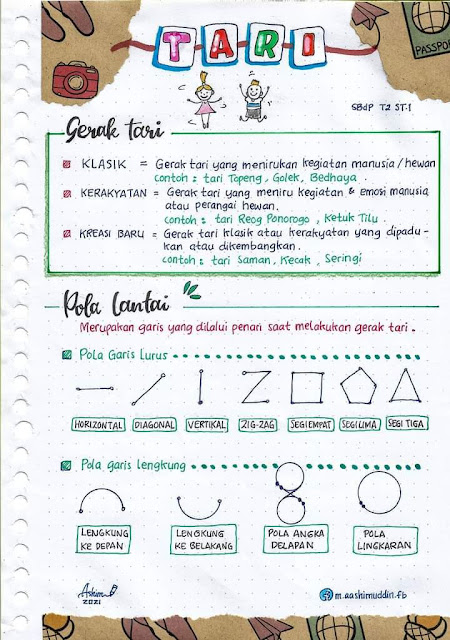 TARI
PASSPORT
SBdP T2 ST-1
Gerak tari
KLASIK = Gerak tari yang menirukan kegiatan manusia/hewan
contoh : tari Topeng, Golek, Bedhaya.
KERAKYATAN = Gerak tari yang meniru kegiatan & emosi manusia
atau perangai hewan.
contoh : tari Reog Ponorogo, Ketuk Tilu.
KREASI BARU = Gerak tari klasik atau kerakyatan yang dipadu-
kan atau dikembangkan.
contoh : tari Saman, Kecak, Seringi
Pola Lantai
Merupakan garis yang dilalui penari saat melakukan gerak tari.
Pola Garis Lurus
HORIZONTAL DIAGONAL VERTIKAL ZIG-ZAG SEGIEMPAT SEGILIMA SEGI TIGA
Pola garis lengkung
LENGKUNG
KE DEPAN
LENGKUNG
KE BELAKANG
POLA ANGKA
DELAPAN
POLA
LINGKARAN
Ashim
2021
m.aashimuddin.fb